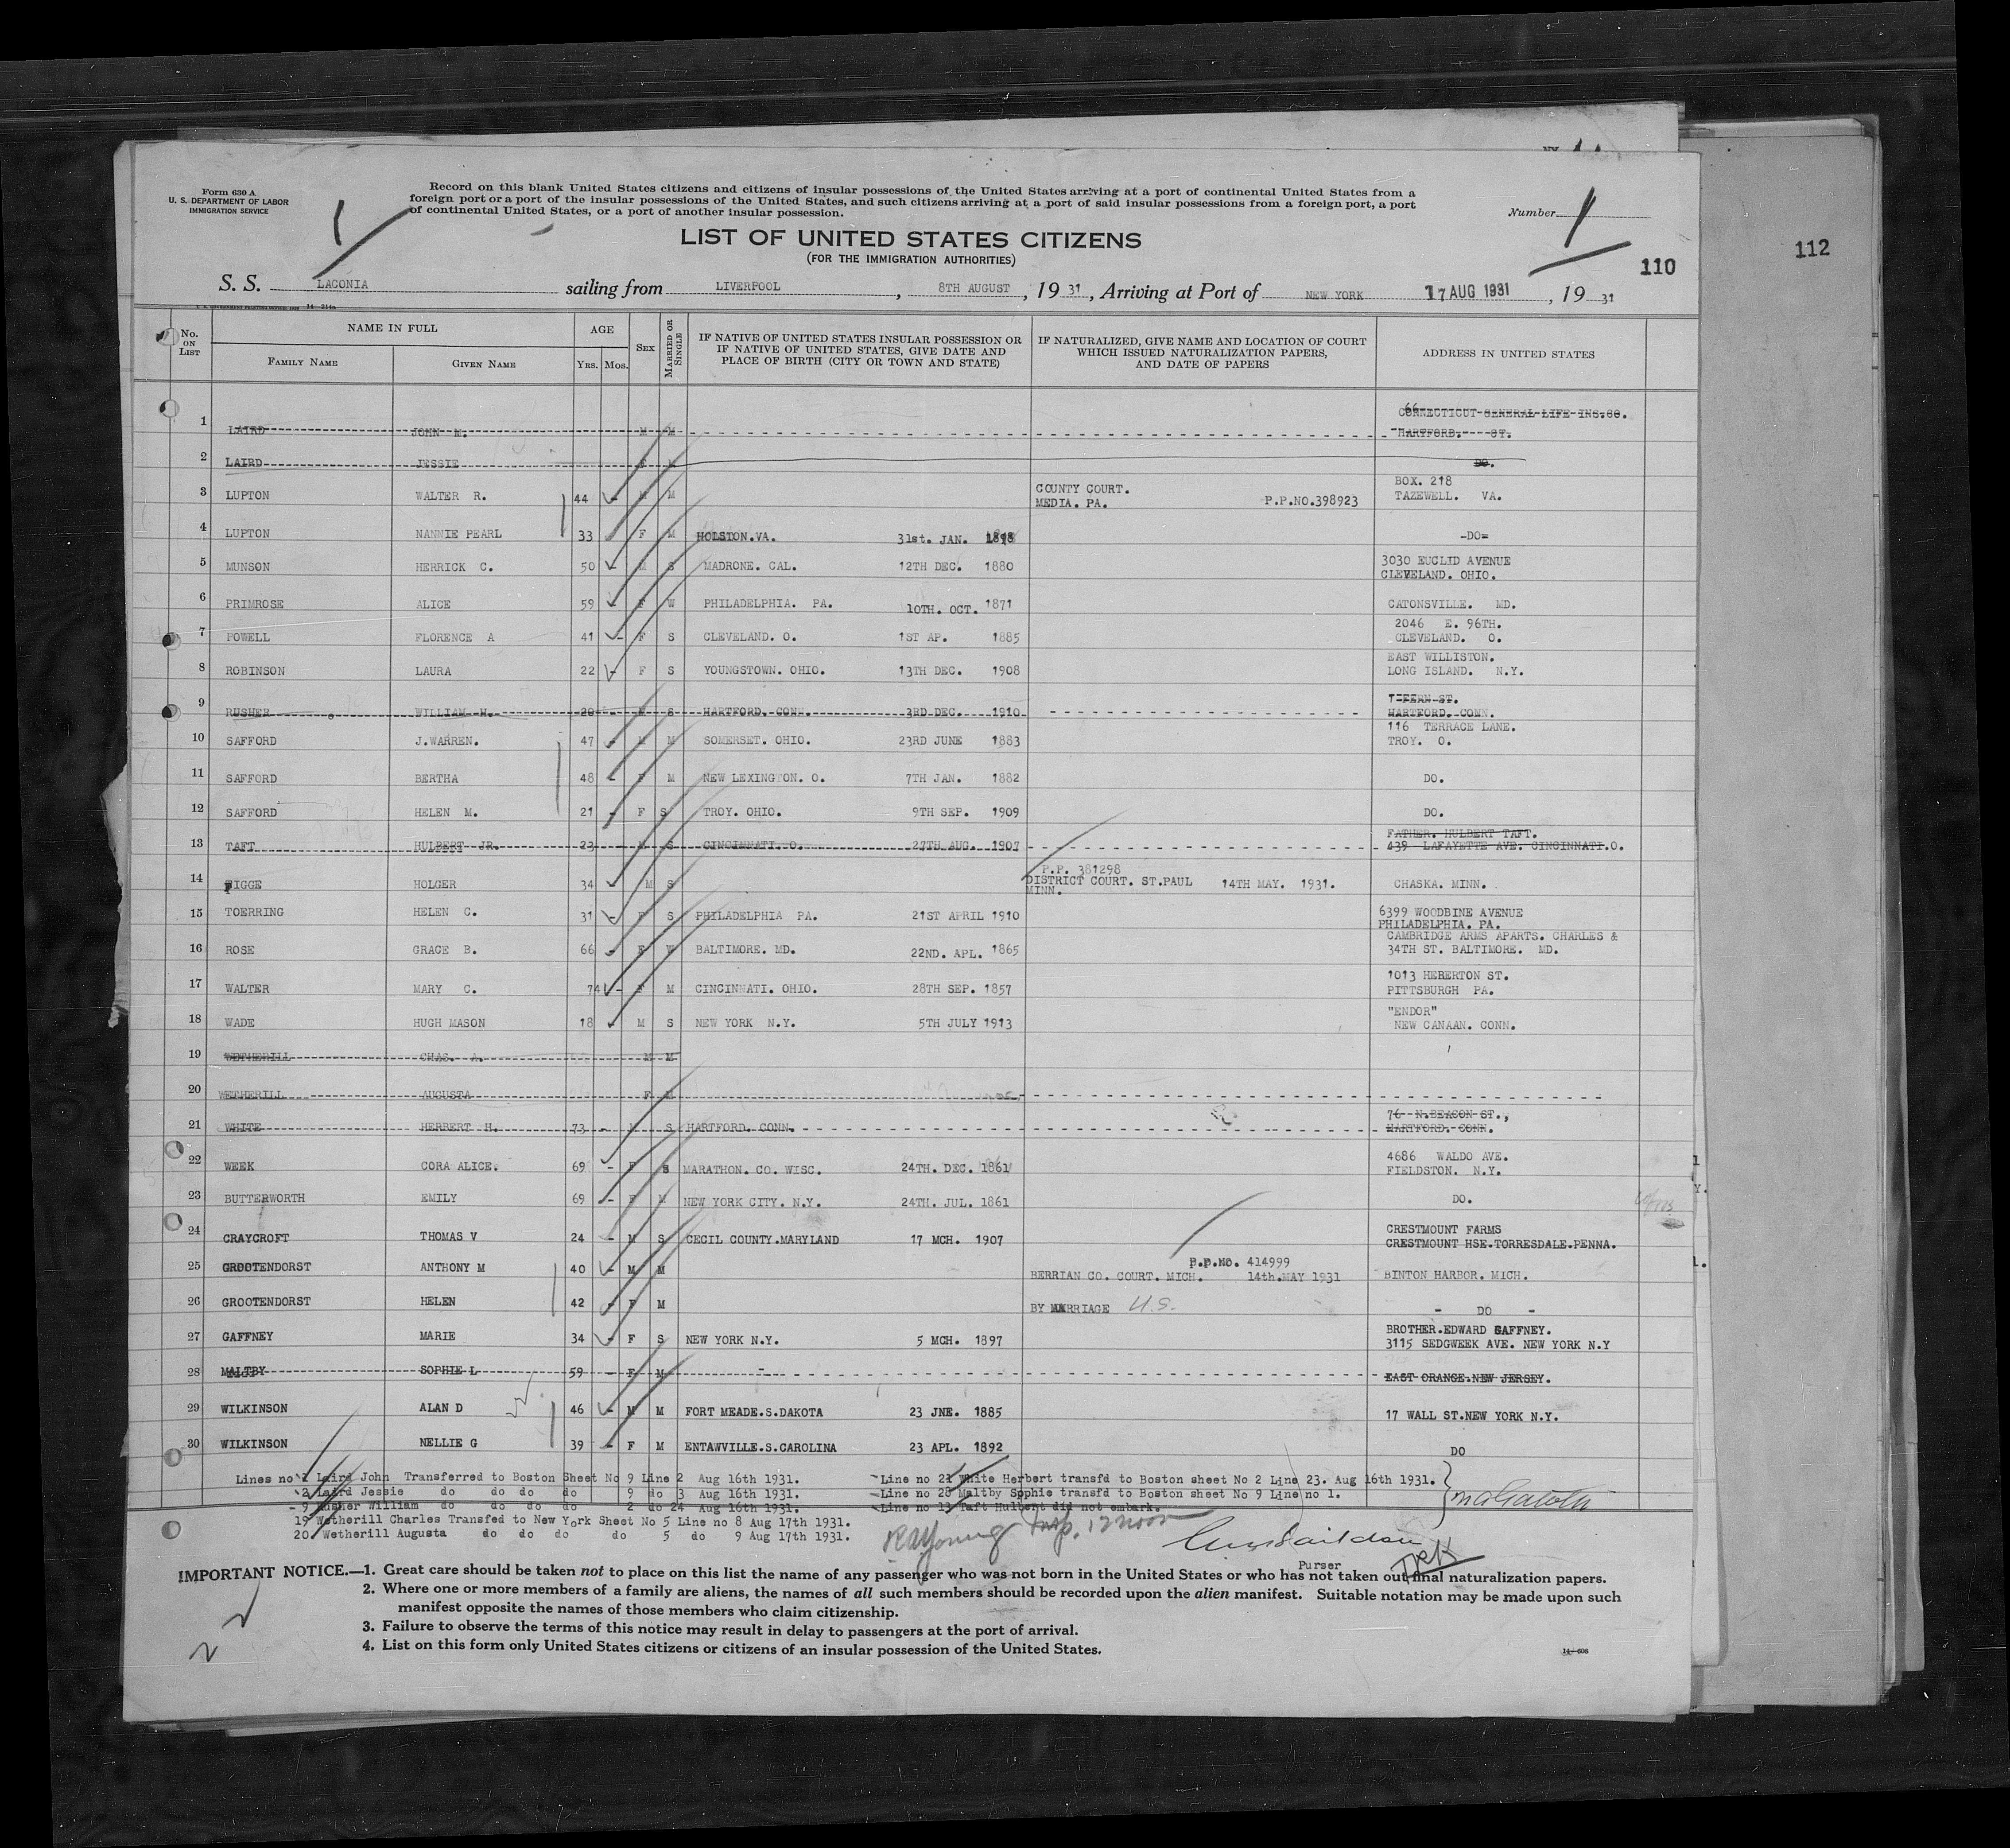 Form 630 A
U. S. DEPARTMENT OF LABOR
IMMIGRATION SERVICE
1
Record on this blank United States citizens and citizens of insular possessions of the United States arriving at a port of continental United States from a
foreign port or a port of the insular possessions of the United States, and such citizens arriving at a port of said insular possessions from a foreign port, a port
of continental United States, or a port of another insular possession.
Number 1
LIST OF UNITED STATES CITIZENS
(FOR THE IMMIGRATION AUTHORITIES)
110
112
S. S. LACONIA sailing from LIVERPOOL, 8TH AUGUST, 19 31, Arriving at Port of NEW YORK 17 AUG 1931, 19 31
No. ON LIST NAME IN FULL FAMILY NAME GIVEN NAME AGE YRS. MOS. SEX MARRIED OR SINGLE IF NATIVE OF UNITED STATES INSULAR POSSESSION OR IF NATIVE OF UNITED STATES, GIVE DATE AND PLACE OF BIRTH (CITY OR TOWN AND STATE) IF NATURALIZED, GIVE NAME AND LOCATION OF COURT WHICH ISSUED NATURALIZATION PAPERS, AND DATE OF PAPERS ADDRESS IN UNITED STATES
1 LAIRD JOHN M. M M CONNECTICUT GENERAL LIFE INS.CO.
HARTFORD. ST.
2 LAIRD JESSIE F M DO.
3 LUPTON WALTER R. 44 - M M COUNTY COURT. MEDIA. PA. P.P.NO.398923 BOX. 218
TAZEWELL. VA.
4 LUPTON NANNIE PEARL 33 F M HOLSTON.VA. 31st. JAN. 1898 -DO=
5 MUNSON HERRICK C. 50 - M S MADRONE. CAL. 12TH DEC. 1880 3030 EUCLID AVENUE
CLEVELAND. OHIO.
6 PRIMROSE ALICE 59 - F W PHILADELPHIA. PA. 10TH. OCT. 1871 CATONSVILLE. MD.
7 POWELL FLORENCE A 41 - F S CLEVELAND. O. 1ST AP. 1885 2046 E. 96TH.
CLEVELAND. O.
8 ROBINSON LAURA 22 - F S YOUNGSTOWN. OHIO. 13TH DEC. 1908 EAST WILLISTON.
LONG ISLAND. N.Y.
9 RUSHER WILLIAM H. 20 - M S HARTFORD. CONN. 3RD DEC. 1910 7 FERN ST.
HARTFORD. CONN.
10 SAFFORD J.WARREN. 47 - M M SOMERSET. OHIO. 23RD JUNE 1883 116 TERRACE LANE.
TROY. O.
11 SAFFORD BERTHA 48 - F M NEW LEXINGTON. O. 7TH JAN. 1882 DO.
12 SAFFORD HELEN M. 21 - F S TROY. OHIO. 9TH SEP. 1909 DO.
13 TAFT HULBERT JR. 23 - M S CINCINNATI. O. 27TH AUG. 1907 FATHER. HULBERT TAFT.
439 LAFAYETTE AVE. CINCINNATI.O.
14 FIGGE HOLGER 34 - M S P.P. 381298
DISTRICT COURT. ST.PAUL 14TH MAY. 1931.
MINN. CHASKA. MINN.
15 TOERRING HELEN C. 31 - F S PHILADELPHIA PA. 21ST APRIL 1910 6399 WOODBINE AVENUE
PHILADELPHIA. PA.
16 ROSE GRACE B. 66 - F W BALTIMORE. MD. 22ND. APL. 1865 CAMBRIDGE ARMS APARTS. CHARLES &
34TH ST. BALTIMORE. MD.
17 WALTER MARY C. 74 - F M CINCINNATI. OHIO. 28TH SEP. 1857 1013 HEBERTON ST.
PITTSBURGH PA.
18 WADE HUGH MASON 18 - M S NEW YORK N.Y. 5TH JULY 1913 "ENDOR"
NEW CANAAN. CONN.
19 WETHERILL CHAS. A. M M
20 WETHERILL AUGUSTA F M
21 WHITE HERBERT H. 73 - M S HARTFORD. CONN. 76 N.BEACON ST.,
HARTFORD. CONN.
22 WEEK CORA ALICE. 69 - F S MARATHON. CO. WISC. 24TH. DEC. 1861 4686 WALDO AVE.
FIELDSTON. N.Y.
23 BUTTERWORTH EMILY 69 - F M NEW YORK CITY. N.Y. 24TH. JUL. 1861 DO.
24 CRAYCROFT THOMAS V 24 - M S CECIL COUNTY.MARYLAND 17 MCH. 1907 CRESTMOUNT FARMS
CRESTMOUNT HSE.TORRESDALE.PENNA.
25 GROOTENDORST ANTHONY M 40 - M M P.P.NO. 414999
BERRIAN CO. COURT. MICH. 14th.MAY 1931 BINTON HARBOR. MICH.
26 GROOTENDORST HELEN 42 - F M BY MARRIAGE U.S. - DO -
27 GAFFNEY MARIE 34 - F S NEW YORK N.Y. 5 MCH. 1897 BROTHER.EDWARD GAFFNEY.
3115 SEDGWEEK AVE. NEW YORK N.Y
28 MALTBY SOPHIE L 59 - F M - EAST ORANGE.NEW JERSEY.
29 WILKINSON ALAN D 46 - M M FORT MEADE.S.DAKOTA 23 JNE. 1885 17 WALL ST.NEW YORK N.Y.
30 WILKINSON NELLIE G 39 - F M ENTAWVILLE.S.CAROLINA 23 APL. 1892 DO
Lines no 1 Laird John Transferred to Boston Sheet No 9 Line 2 Aug 16th 1931.
2 Laird Jessie do do do do 9 do 3 Aug 16th 1931.
- 9 Rusher William do do do do 2 do 24 Aug 16th 1931.
19 Wetherill Charles Transfed to New York Sheet No 5 Line no 8 Aug 17th 1931.
20. Wetherill Augusta do do do do 5 do 9 Aug 17th 1931.
Line no 21 White Herbert transfd to Boston sheet No 2 Line 23. Aug 16th 1931.
Line no 28 Maltby Sophie transfd to Boston sheet No 9 Line no 1.
Line no 13 Taft Hulbert did not embark.
RA Young Insp. 12 noon
Purser
IMPORTANT NOTICE.—1. Great care should be taken not to place on this list the name of any passenger who was not born in the United States or who has not taken out final naturalization papers.
2. Where one or more members of a family are aliens, the names of all such members should be recorded upon the alien manifest. Suitable notation may be made upon such
manifest opposite the names of those members who claim citizenship.
3. Failure to observe the terms of this notice may result in delay to passengers at the port of arrival.
4. List on this form only United States citizens or citizens of an insular possession of the United States.
14—606